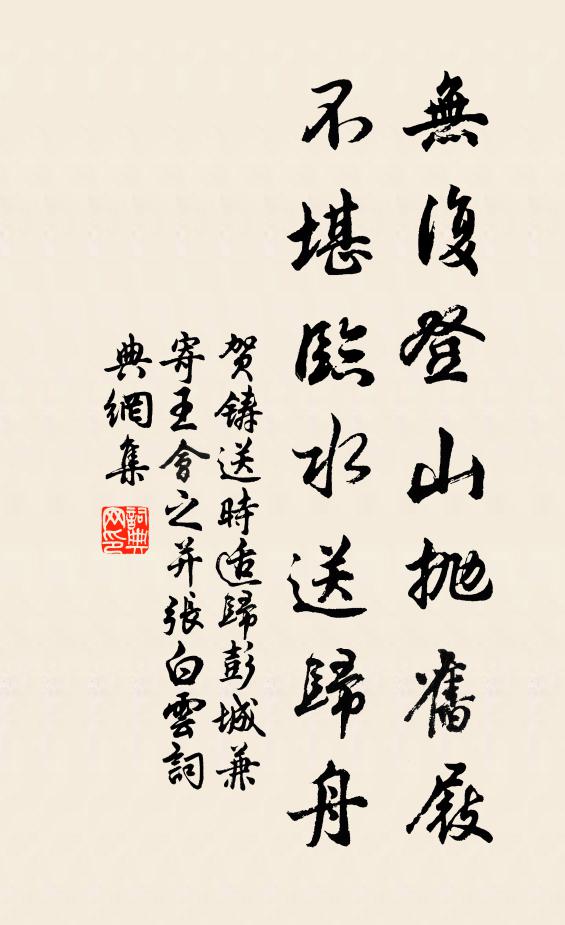 無復登山拋舊屐
不堪臨水送歸舟
賀鑄送時适歸彭城兼
寄王會之并張白雲詞
典網集
詞典网印